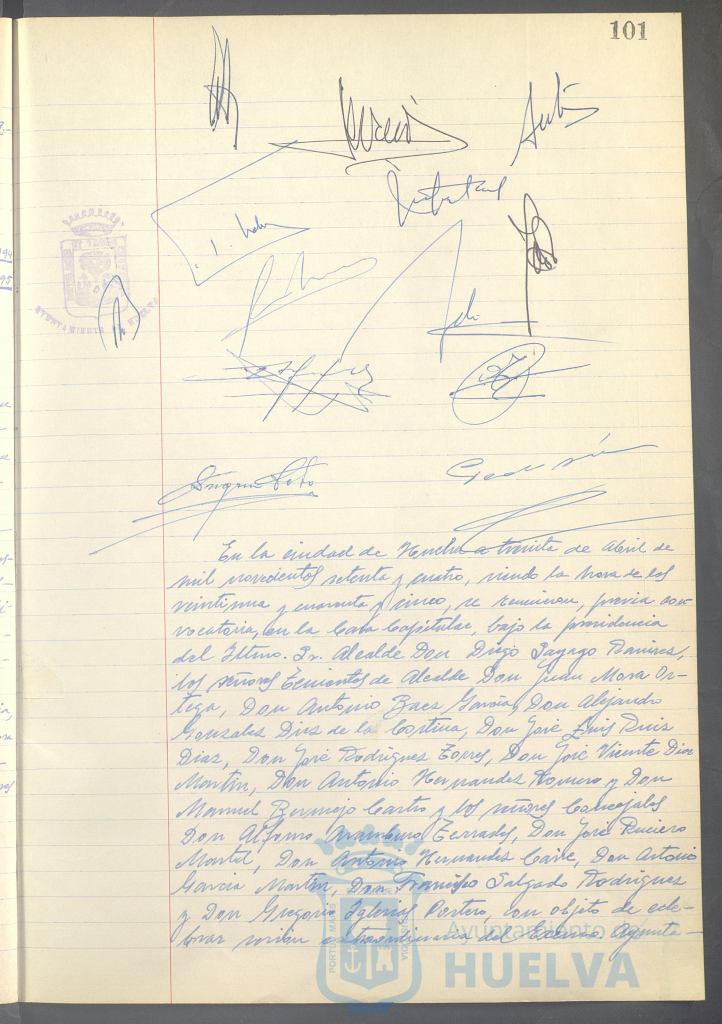 101
En la ciudad de Huelva a treinta de Abril de
mil novecientos setenta y cuatro, siendo la hora de las
veintiuna y cuarenta y cinco, se reunieron, previa con-
vocatoria, en la Casa Capitular, bajo la presidencia
del Iltmo. Sr. Alcalde Don Diego Sayago Ramirez,
los señores Tenientes de Alcalde Don Juan Mora Or-
tega, Don Antonio Baez Garcia, Don Alejandro
Gonzalez Diez de la Cortina, Don José Luis Ruiz
Diaz, Don José Rodriguez Torres, Don José Vicente Diaz
Martin, Don Antonio Hernandez Romero y Don
Manuel Bermejo Castro y los señores Concejales
Don Alfonso Aramburu Terrades, Don José Ruciero
Montel, Don Antonio Hernandez Caire, Don Antonio
Garcia Martin, Don Francisco Salgado Rodriguez
y Don Gregorio Iglesias Portero, con objeto de cele-
brar sesión extraordinaria del Excmo. Ayunta-
Ayuntamiento
HUELVA